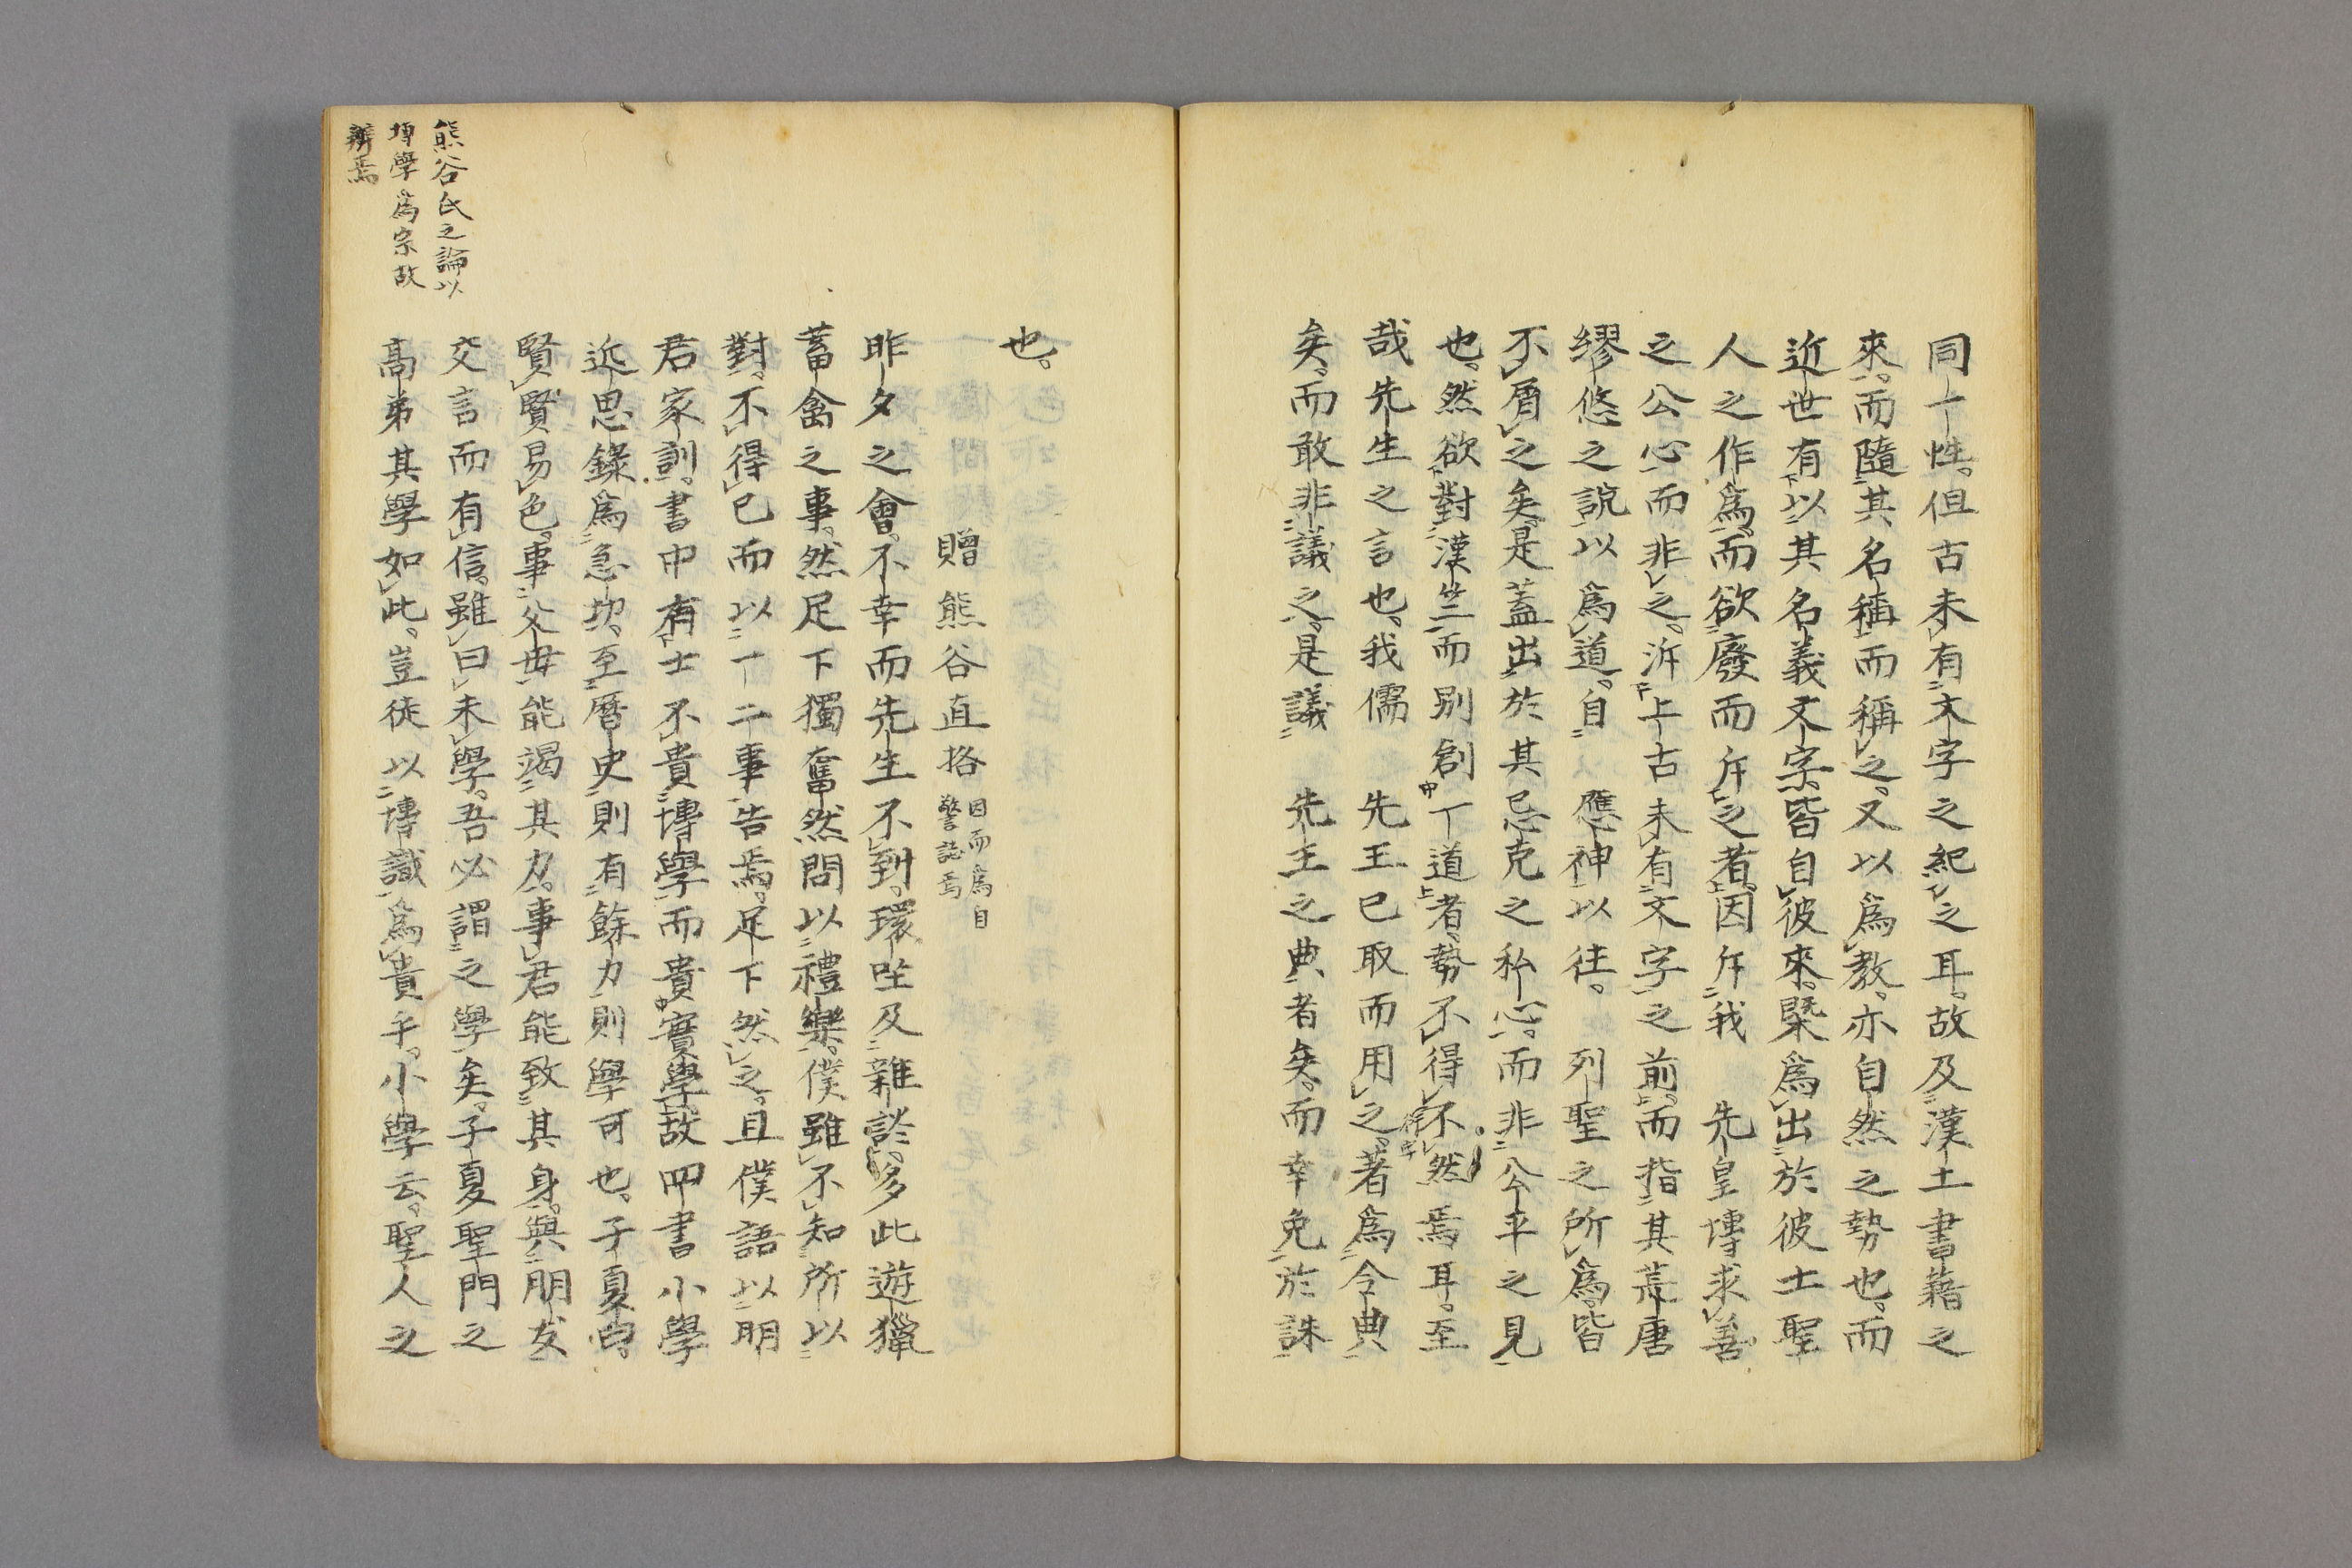 同一性。但古未有文字之紀之耳。故及漢土書藉之
來。而隨其名稱而稱之。又以爲教。亦自然之勢也。而
近世有以其名義文字皆自彼來。槩爲出於彼土聖
人之作爲。而欲廢而斥之者。因斥我　先皇博求善
之公心而非之。泝上古未有文字之前。而指其荒唐
繆悠之說以爲道。自　應神以往。列聖之所爲。皆
不屑之矣。是蓋出於其忌克之私心。而非公平之見
也。然欲對漢竺而別創一道者。勢不得不然焉耳。至
哉先生之言也。我儒　先王已取而用之。著爲令典
矣。而敢非議之。是議　先王之典者矣。而幸免於誅
也。
贈熊谷直格 因而爲自警誌焉
昨夕之會。不幸而先生不到。環坐及雜談。多此遊獵
蓄禽之事。然足下獨奮然問以禮樂。僕雖不知所以
對。不得已而以一二事告焉。足下然之。且僕語以明
君家訓。書中有士不貴博學而貴實學。故四書小學
近思錄爲急切。至曆史則有餘力則學可也。子夏曰。
賢賢易色。事父母能竭其力。事君能致其身。與朋友
交言而有信。雖曰未學。吾必謂之學矣。子夏聖門之
高弟其學如此。豈徒以博識爲貴乎。小學云。聖人之
熊谷氏之論以
博學爲宗故
辨焉